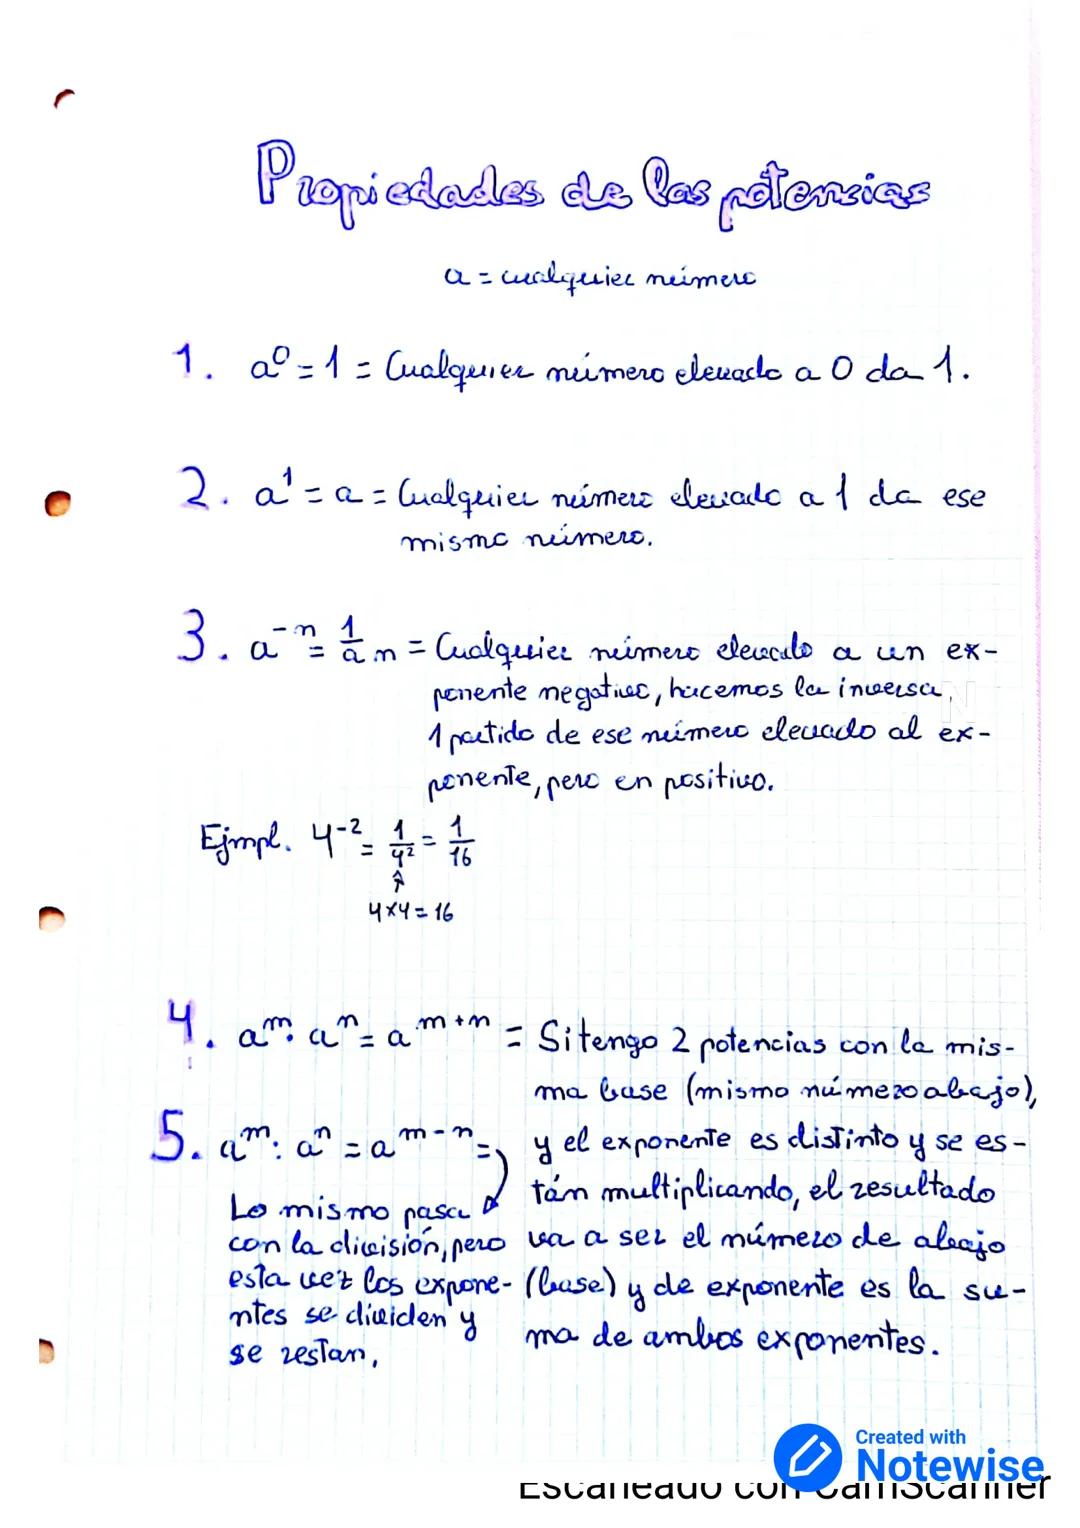 Propiedades de las potencias
a = cualquier número
1. a⁰ = 1 = Cualquier número elevado a 0 da 1.
2. a¹ = a = Cualquier número elevado a 1 da ese
mismo número.
3. a⁻ⁿ = 1/aⁿ = Cualquier número elevado a un ex-
ponente negativo, hacemos la inversa,
1 partido de ese número elevado al ex-
ponente, pero en positivo.
Ejmpl. 4⁻² = 1/4² = 1/16
4x4=16
4. aᵐ · aⁿ = aᵐ⁺ⁿ = Si tengo 2 potencias con la mis-
ma base (mismo número abajo),
y el exponente es distinto y se es-
tán multiplicando, el resultado
va a ser el número de abajo
(base) y de exponente es la su-
ma de ambos exponentes.
5. aᵐ : aⁿ = aᵐ⁻ⁿ =
Lo mismo pasa
con la división, pero
esta vez los expone-
ntes se dividen y
se restan,
Created with
Notewise
Escaneado con CamScanner